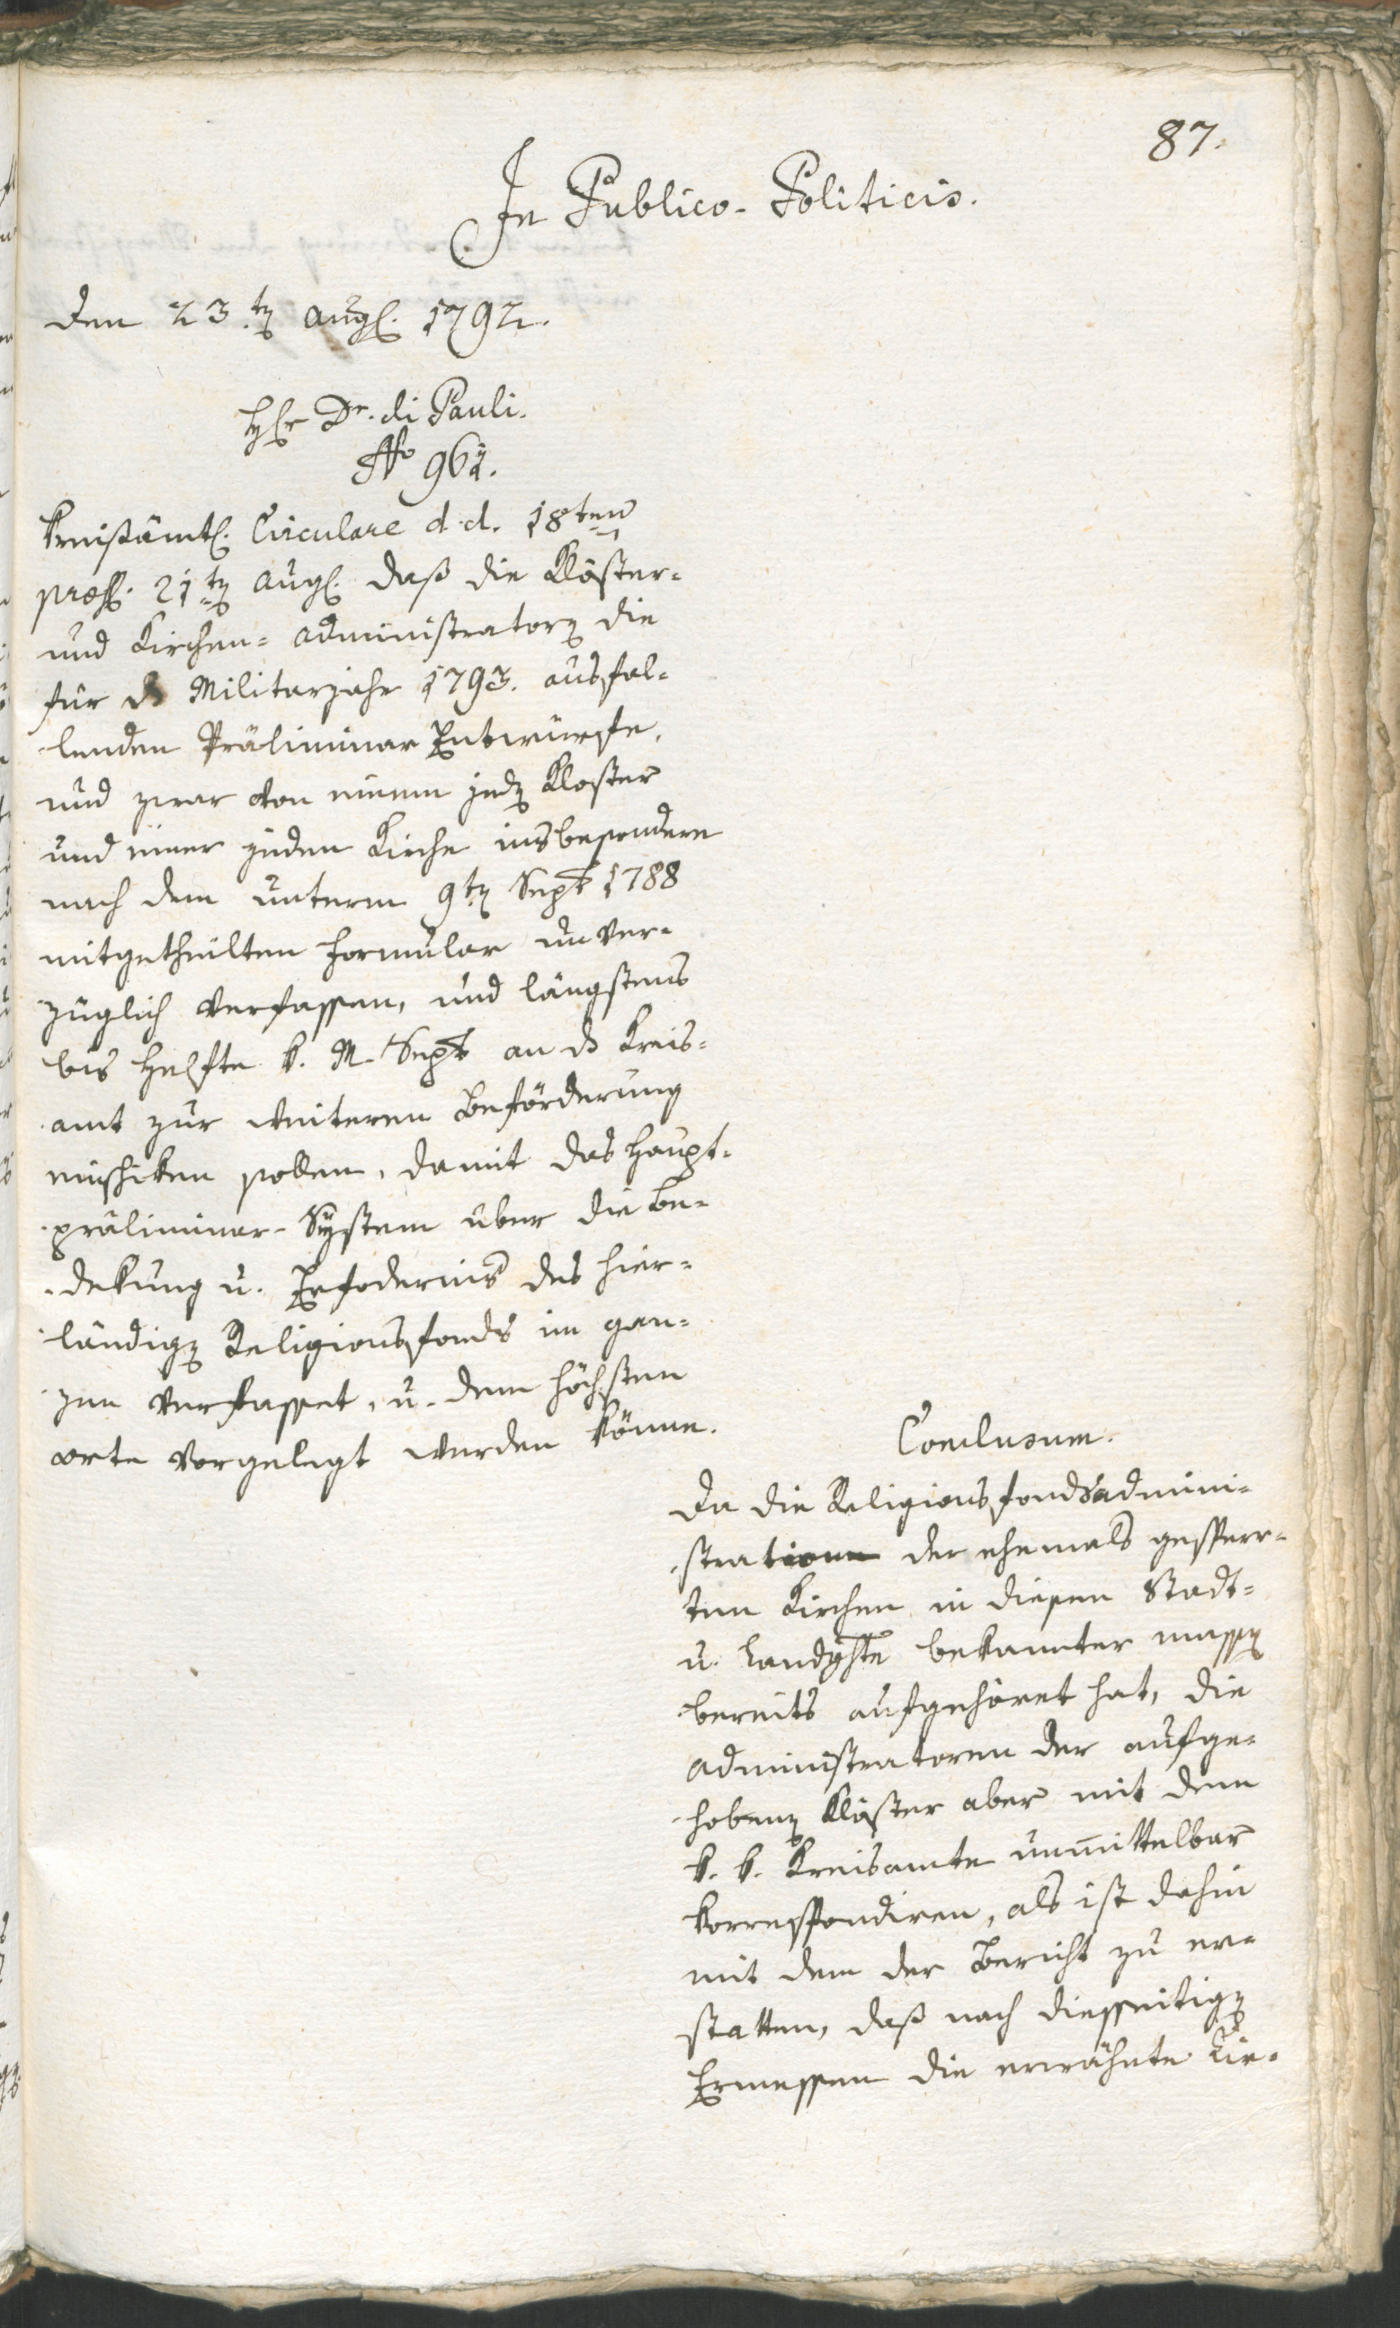 87.
In Publico-Politicis.
den 23.ten Aug. 1792.
H Dr. di Pauli.
No 961.
Kreisämtl. Circulare d. d. 18ten
præs. 21ten Aug. daß die Klöster-
und Kirchen-Administratoren die
für das Militarjahr 1793. ausfal-
lenden Präliminar Entwürfe,
und zwar von einem jeden Kloster
und einer jeden Kirche insbesondere
nach dem unterm 9ten Sept 1788
mitgetheilten Formular unver-
züglich verfassen, und längstens
bis Helfte k. M. Sept an das Kreis-
amt zur weiteren Beförderung
einschiken sollen, damit das Haupt-
präliminar-System über die Be-
dekung u. Erfoderniß des hier-
ländigen Religionsfonds im gan-
zen verfasset, u. dem höchsten
Orte vorgelegt werden könne.
Conclusum.
Da die Religionsfondsadmini-
stration der ehemals gesperr-
ten Kirchen in diesem Stadt-
u. Landghte bekannter massen
bereits aufgehöret hat, die
Administratoren der aufge-
hobenen Klöster aber mit dem
k. k. Kreisamte unmittelbar
korrespondiren, als ist dahin
mit dem der Bericht zu er-
statten, daß nach diesseitigen
Ermessen die erwähnte Cir-